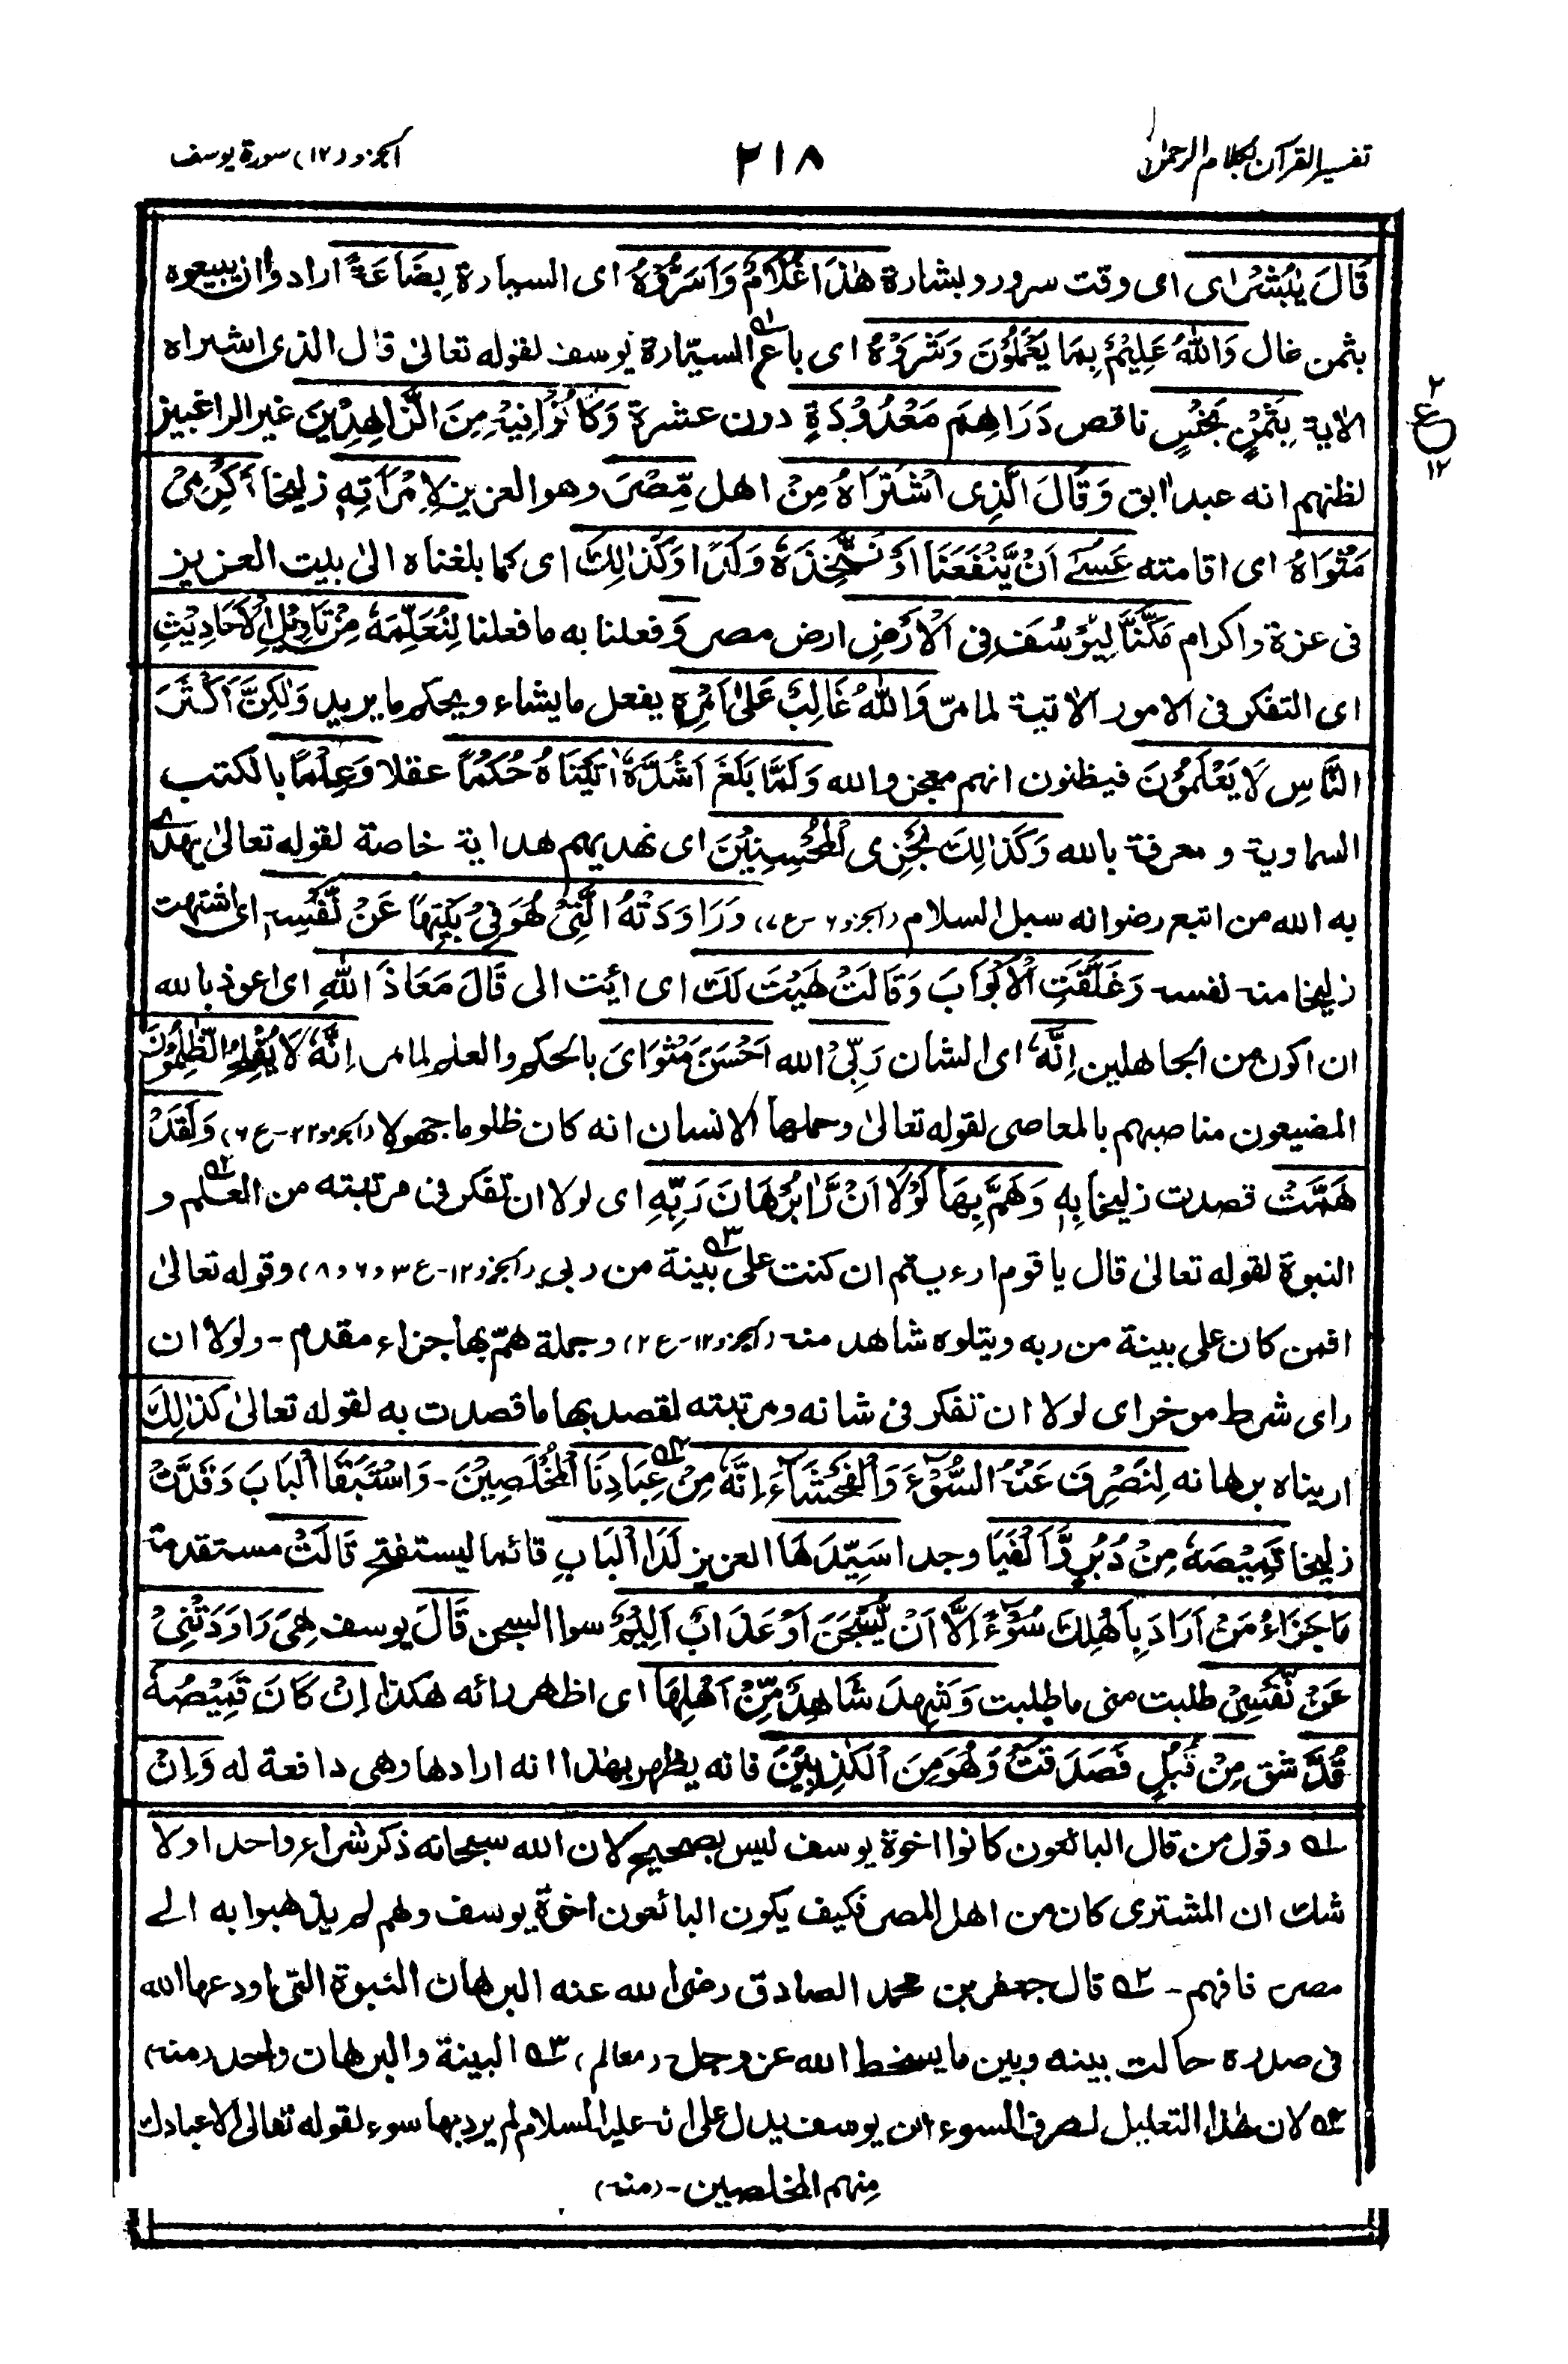 تفسير القرآن بكلام الرحمٰن
٢١٨
الجزو (١٢) سورة يوسف
قَالَ يٰبُشْرٰاى اى وقت سرور و بشارة هٰذَا غُلَامٌ وَاَسَرُّوْهُ اى السيارة بِضَاعَةً ارادوا ان يبيعوه
بثمن غال وَاللهُ عَلِيْمٌۢ بِمَا يَعْمَلُوْنَ وَشَرَوْهُ اى باع ١ه السيّارة يوسف لقوله تعالىٰ قال الذى اشتراه
الاٰية بِثَمَنٍۢ بَخْسٍ ناقص دَرَاهِمَ مَعْدُوْدَةٍ دون عشرة وَكَانُوْا فِيْهِ مِنَ الزَّاهِدِيْنَ غير الراغبين
لظنهم انه عبد اٰبق وَقَالَ الَّذِى اشْتَرَاهُ مِنْ اهل مِّصْرَ وهو العزيز لِامْرَأَتِهٖ زليخا اَكْرِمِىْ
مَثْوَاهُ اى اقامته عَسٰے اَنْ يَّنْفَعَنَا اَوْ نَتَّخِذَهٗ وَلَدًا وَكَذٰلِكَ اى كما بلغناه الىٰ بيت العزيز
فى عزة واكرام مَكَّنَّا لِيُوْسُفَ فِى الْاَرْضِ ارض مصر وَ فعلنا به ما فعلنا لِنُعَلِّمَهٗ مِنْ تَاْوِيْلِ الْاَحَادِيْثِ
اى التفكر فى الامور الاٰتية لما مرّ وَاللهُ غَالِبٌ عَلٰى اَمْرِهٖ يفعل ما يشاء ويحكم ما يريد وَلٰكِنَّ اَكْثَرَ
النَّاسِ لَا يَعْلَمُوْنَ فيظنون انهم معجزو الله وَلَمَّا بَلَغَ اَشُدَّهٗ اٰتَيْنَاهُ حُكْمًا عقلا وَعِلْمًا بالكتب
السماوية و معرفة بالله وَكَذٰلِكَ نَجْزِى الْمُحْسِنِيْنَ اى نهديهم هداية خاصة لقوله تعالىٰ يهدى
به الله من اتبع رضوانه سبل السلام (الجزو ٦-ع ٧) وَرَاوَدَتْهُ الَّتِىْ هُوَ فِىْ بَيْتِهَا عَنْ نَّفْسِهٖ اى اشتهت
زليخا منه نفسه وَغَلَّقَتِ الْاَبْوَابَ وَقَالَتْ هَيْتَ لَكَ اى ائيت الى قَالَ مَعَاذَ اللهِ اى اعوذ بالله
ان اكون من الجاهلين اِنَّهٗ اى الشان رَبِّىْ الله اَحْسَنَ مَثْوَاىَ بالحكم والعلم لما مر اِنَّهٗ لَا يُفْلِحُ الظّٰلِمُوْنَ
المضيعون مناصبهم بالمعاصى لقوله تعالىٰ وحملها الانسان انه كان ظلوما جهولا (الجزو ٢٢-ع ٦) وَلَقَدْ
هَمَّتْ قصدت زليخا بِهٖ وَهَمَّ بِهَا لَوْلَا اَنْ رَّاٰ بُرْهَانَ رَبِّهٖ اى لولا ان تفكر فى مرتبته من العلم ٢ه و
النبوة لقوله تعالىٰ قال يا قوم ارءيتم ان كنت على بينة ٣ه من ربى (الجزو ١٢-ع ٣ و ٦ و ٨) وقوله تعالىٰ
افمن كان على بينة من ربه ويتلوه شاهد منه (الجزو ١٢-ع ٢) وجملة همّ بها جزاء مقدم - ولولا ان
راى شرط موخر اى لولا ان تفكر فى شانه ومرتبته لقصد بها ما قصدت به لقوله تعالىٰ كَذٰلِكَ
اريناه برهانه لِنَصْرِفَ عَنْهُ السُّوْۤءَ وَالْفَحْشَاۤءَ اِنَّهٗ ٤ه مِنْ عِبَادِنَا الْمُخْلَصِيْنَ - وَاسْتَبَقَا الْبَابَ وَقَدَّتْ
زليخا قَمِيْصَهٗ مِنْ دُبُرٍ وَّاَلْفَيَا وجدا سَيِّدَهَا العزيز لَدَا الْبَابِ قائما ليستفتح قَالَتْ مستقدمة
مَا جَزَاءُ مَنْ اَرَادَ بِاَهْلِكَ سُوْۤءً اِلَّا اَنْ يُّسْجَنَ اَوْ عَذَابٌ اَلِيْمٌ سوا السجن قَالَ يوسف هِىَ رَاوَدَتْنِىْ
عَنْ نَّفْسِىْ طلبت منى ما طلبت وَشَهِدَ شَاهِدٌ مِّنْ اَهْلِهَا اى اظهر رائه هكذا اِنْ كَانَ قَمِيْصُهٗ
قُدَّ شق مِنْ قُبُلٍ فَصَدَقَتْ وَهُوَ مِنَ الْكٰذِبِيْنَ فانه يظهر بهٰذا انه ارادها وهى دافعة له وَاِنْ
١ه وقول من قال البائعون كانوا اخوة يوسف ليس بصحيح لان الله سبحانه ذكر شراء واحد اولا
شك ان المشترى كان من اهل المصر فكيف يكون البائعون اخوة يوسف وهم لم يذهبوا به الے
مصر فافهم - ٢ه قال جعفر بن محمد الصادق رضى الله عنه البرهان النبوة التى اودعها الله
فى صدره حالت بينه وبين ما يسخط الله عز وجل (معالم) ٣ه البينة والبرهان واحد (منه)
٤ه لان هٰذا التعليل لصرف السوء عن يوسف يدل على انه عليه السلام لم يرد بها سوء لقوله تعالىٰ الا عبادك
منهم المخلصين - (منه)
٢
ع
١٢